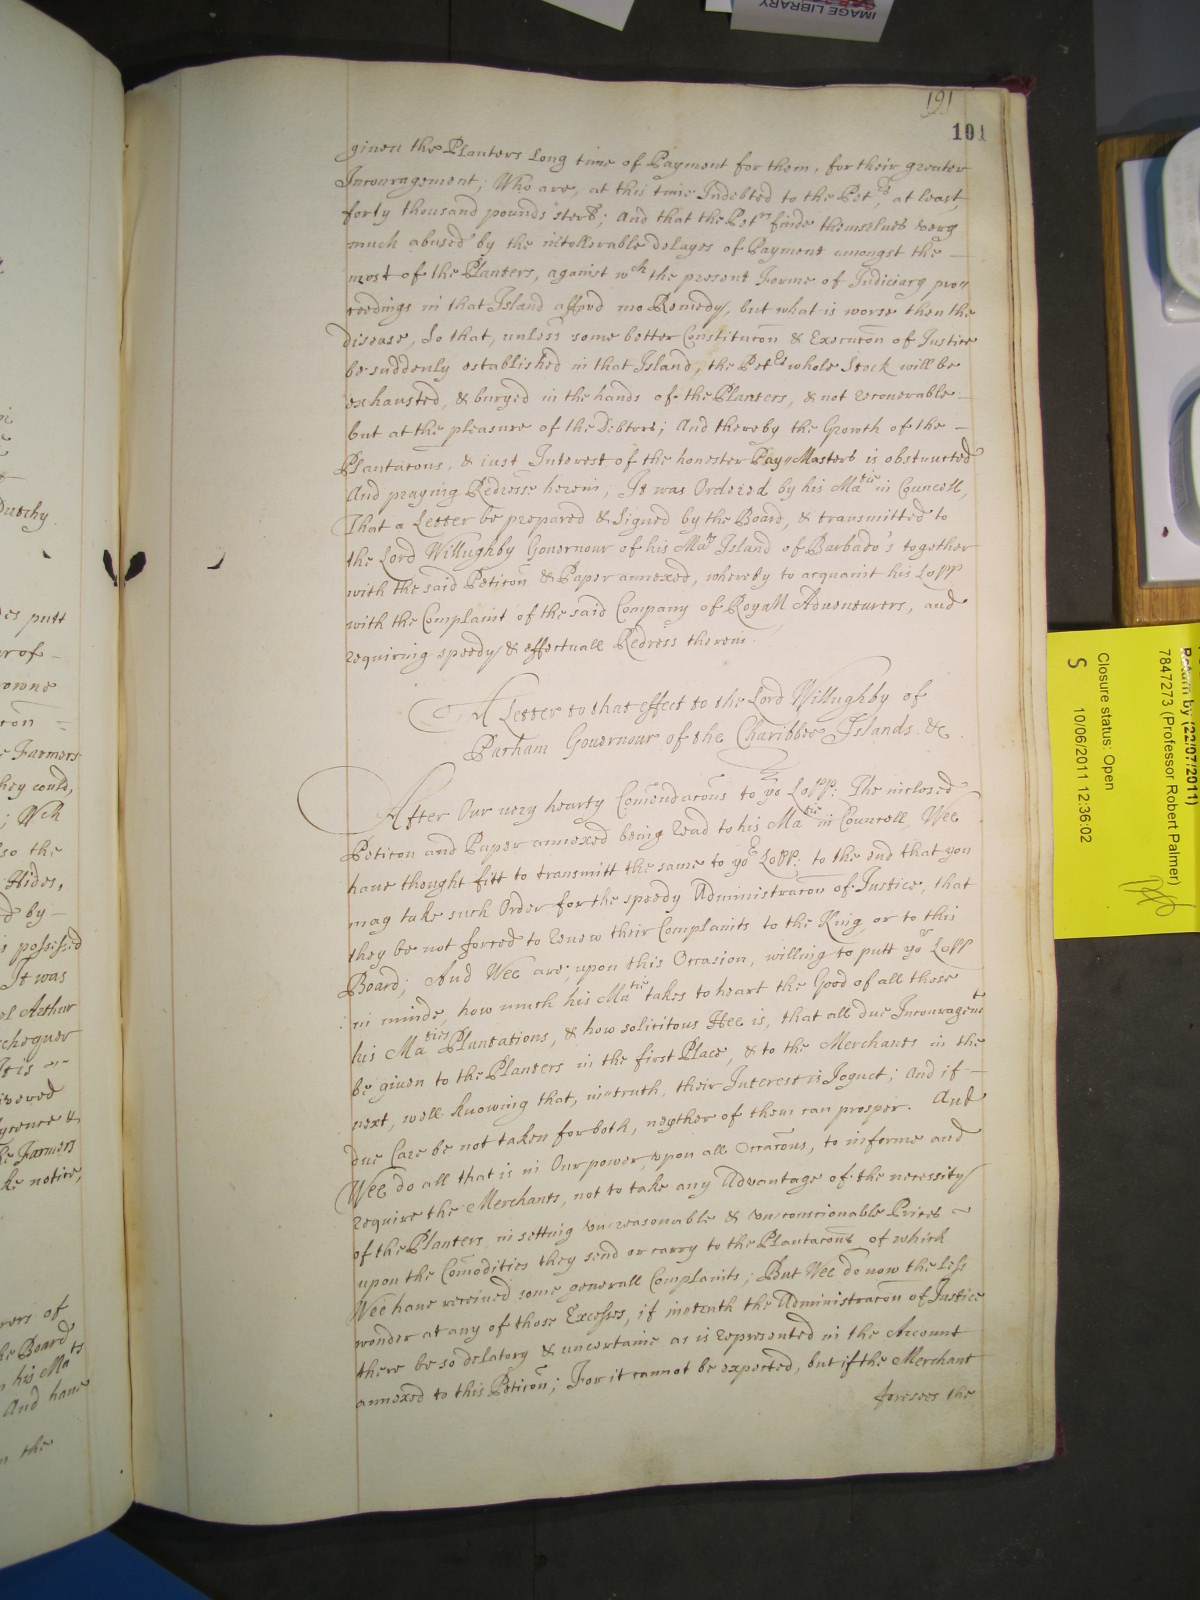 IMAGE LIBRARY
191
191
given the Planters long time of Payment for them, for their greater
Incouragement; Who are, at this time Indebted to the Petrs, at least,
forty thousand pounds sterl; And that the Petrs finde themselves very
much abused by the intollerable delayes of Payment amongst the
most of the Planters, against wch the present Forme of Judiciary pro
ceedings in that Island afford no Remedy, but what is worse then the
disease, So that, unless some better Constitucon & Execucon of Justice
be suddenly established in that Island, the Petrs whole Stock will be
exhausted, & buryed in the hands of the Planters, & not recoverable
but at the pleasure of the Debtors; And thereby the Growth of the
Plantacons, & iust Interest of the honester Pay-Masters is obstructed
And praying Redresse herein; It was Ordered by his Matie in Councell,
That a Letter be prepared & Signed by the Board, & transmitted to
the Lord Willughby Governour of his Mats Island of Barbado's together
with the said Peticon & Paper annexed, whereby to acquaint his Lopp
with the Complaint of the said Company of Royall Adventurers, and
requiring speedy & effectuall Redress therein
A Letter to that effect to the Lord Willughby of
Parham Governour of the Charibbee Islands &c.
After Our very hearty Comendacons to yor Lopp: The inclosed
Peticon and Paper annexed being read to his Matie in Councell, Wee
have thought fitt to transmitt the same to yor Lopp: to the end that you
may take such Order for the speedy Administracon of Justice, that
they be not forced to renew their Complaints to the King, or to this
Board; And Wee are, upon this Occasion, willing to putt yor Lopp
in minde, how much his Matie takes to heart the Good of all those
his Maties Plantations, & how solicitous Hee is, that all due Incouragemt
be given to the Planters in the first Place, & to the Merchants in the
next, well knowing that, in truth, their Interest is Joynct; And if
due Care be not taken for both, neyther of them can prosper. And
Wee do all that is in Our power, upon all Occacons, to informe and
require the Merchants, not to take any Advantage of the necessity
of the Planters, in setting unreasonable & unconscionable Prices
upon the Comodities they send or carry to the Plantacons of which
Wee have received some generall Complaints; But Wee do now the less
wonder at any of those Excesses, if in truth the Administracon of Justice
there be so delatory & uncertaine as is represented in the Account
annexed to this Peticon; For it cannot be expected, but if the Merchant
foresees the
Dutchy.
putt
of
Farmers
they could,
so the
Hides,
by
possessed
It was
Arthur
Farmers
notice,
of
the Board
his Mats
And have
the
Return by (22/07/2011)
7847273 (Professor Robert Palmer)
Closure status: Open
10/06/2011 12:36:02
S